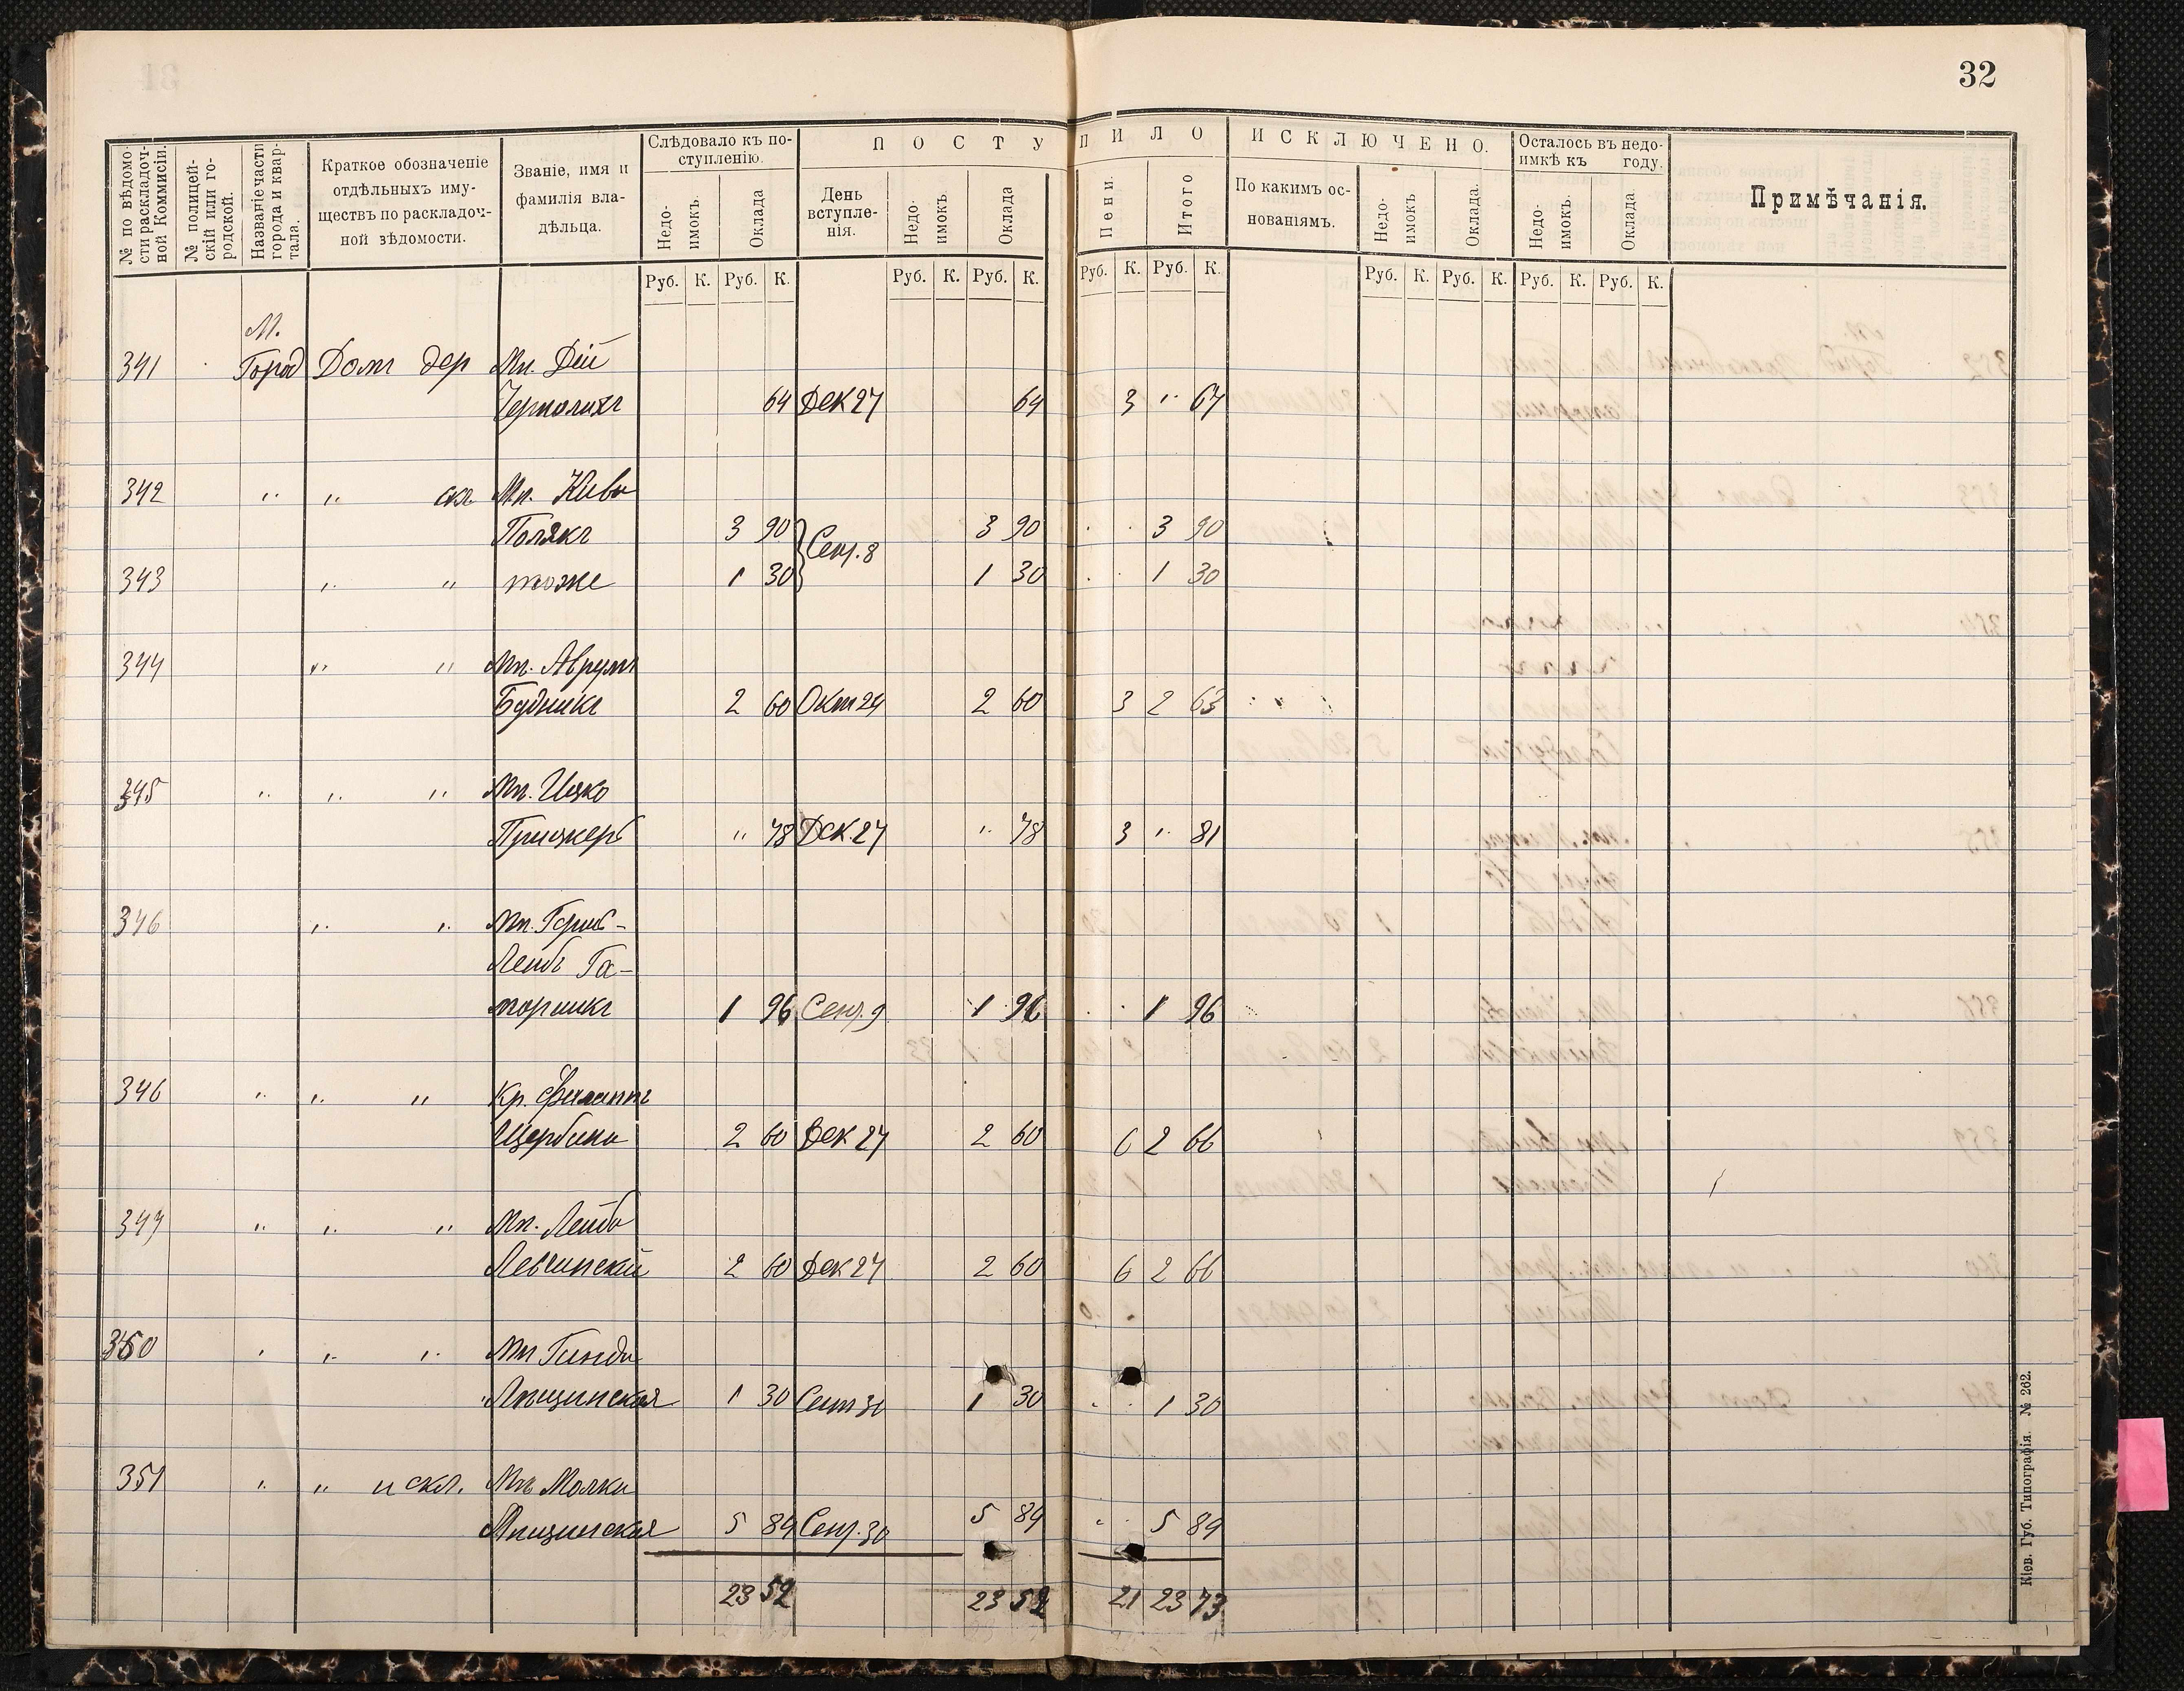 32
№ по вѣдомости раскладочной Коммисіи.
№ полицейскій или городской.
Названіе части города и квартала.
Краткое обозначеніе отдѣльныхъ имуществъ по раскладочной вѣдомости.
Званіе, имя и фамилія владѣльца.
Слѣдовало къ поступленію.
Недоимокъ. Оклада
ПОСТУПИЛО
День вступленія.
Недоимокъ. Оклада
Пени. Итого
ИСКЛЮЧЕНО.
По какимъ основаніямъ.
Недоимокъ Оклада.
Осталось въ недоимкѣ къ году.
Недоимокъ. Оклада.
Примѣчанія.
Руб. К. Руб. К. Руб. К. Руб. К. Руб. К. Руб. К. Руб. К. Руб. К. Руб. К. Руб. К.
М.
341 Город Домъ дер Мп.
64 Дек 27 64 3 " 67
342 " " скл Мп. Кива
Полякъ 3 90 Сент. 8 3 90 3 90
343 " " тоже 1 30 1 30 1 30
344 " " Мп. Аврумъ
Будникъ 2 60 Окт 24 2 60 3 2 63
345 " " " Мп. Ицко
" 78 Дек. 27 " 78 3 " 81
346 " " Мп. Герш-
Лейб Га-
1 96 Сент. 9 1 96 1 96
346 " " " Кр. Филиппъ
Щербина 2 60 Дек 27 2 60 6 2 66
347 " " " Мп. Лейба
Левчинскій 2 60 Дек 27 2 60 6 2 66
350 " " " Мп Гинда
Липщинская 1 30 Сент 30 1 30 1 30
351 " " и скл. Мп
Липщинская 5 84 Сент. 30 5 84 5 84
23 52 23 52 21 23 73
Кіев. Губ. Типографія. № 262.